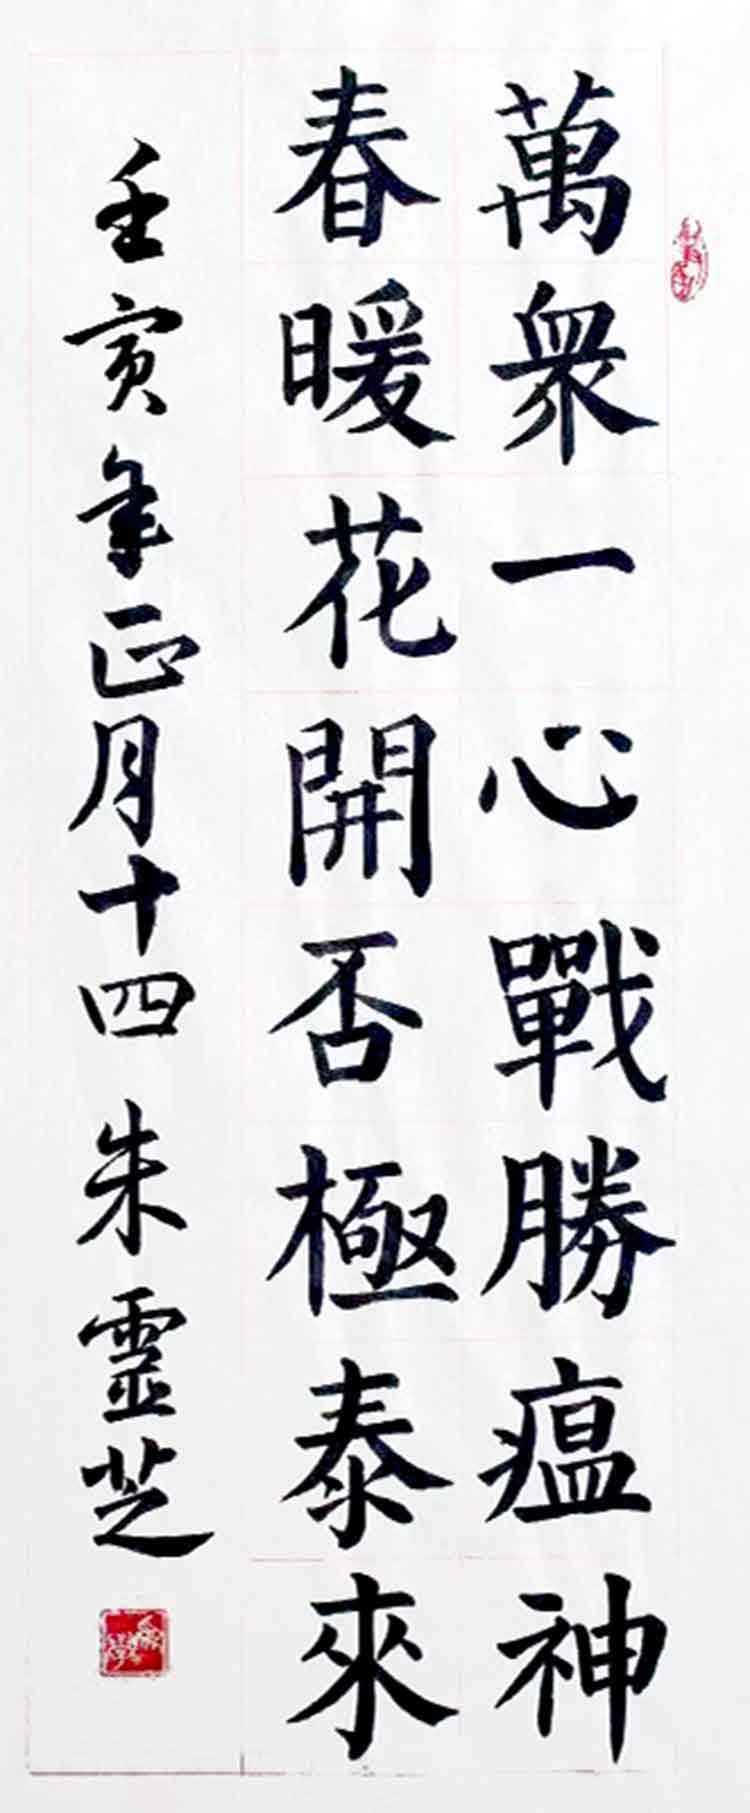 萬衆一心戰勝瘟神
春暖花開否極泰來
壬寅年正月十四 朱靈芝